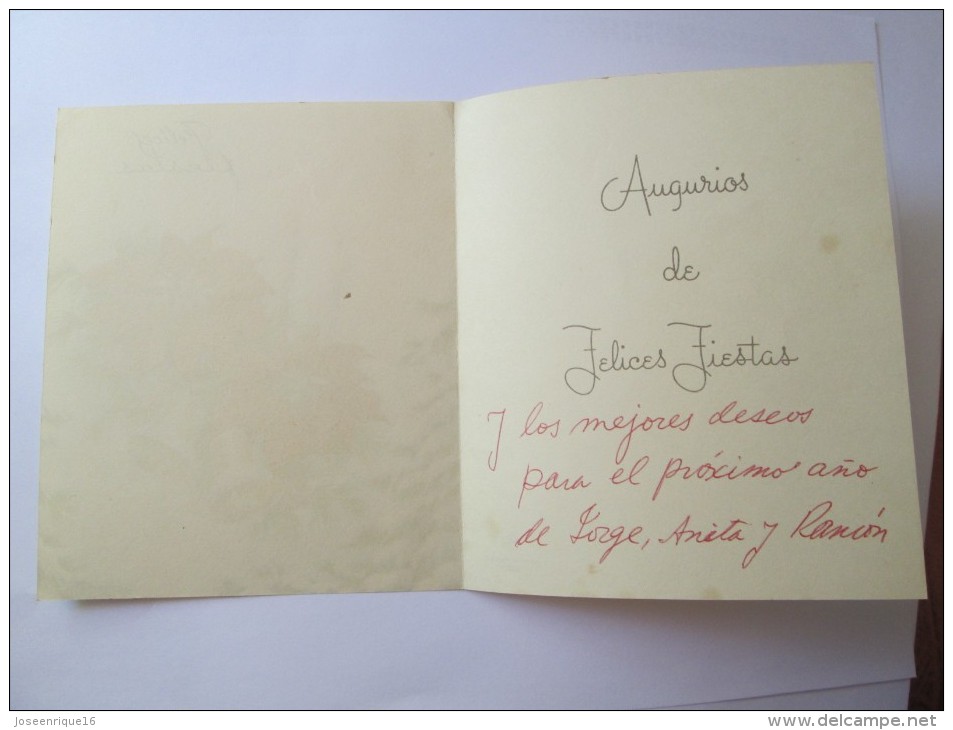 Augurios
de
Felices Fiestas
y los mejores deseos
para el próximo año
de Jorge, Anita y Ramón
Joseenrique16
www.delcampe.net